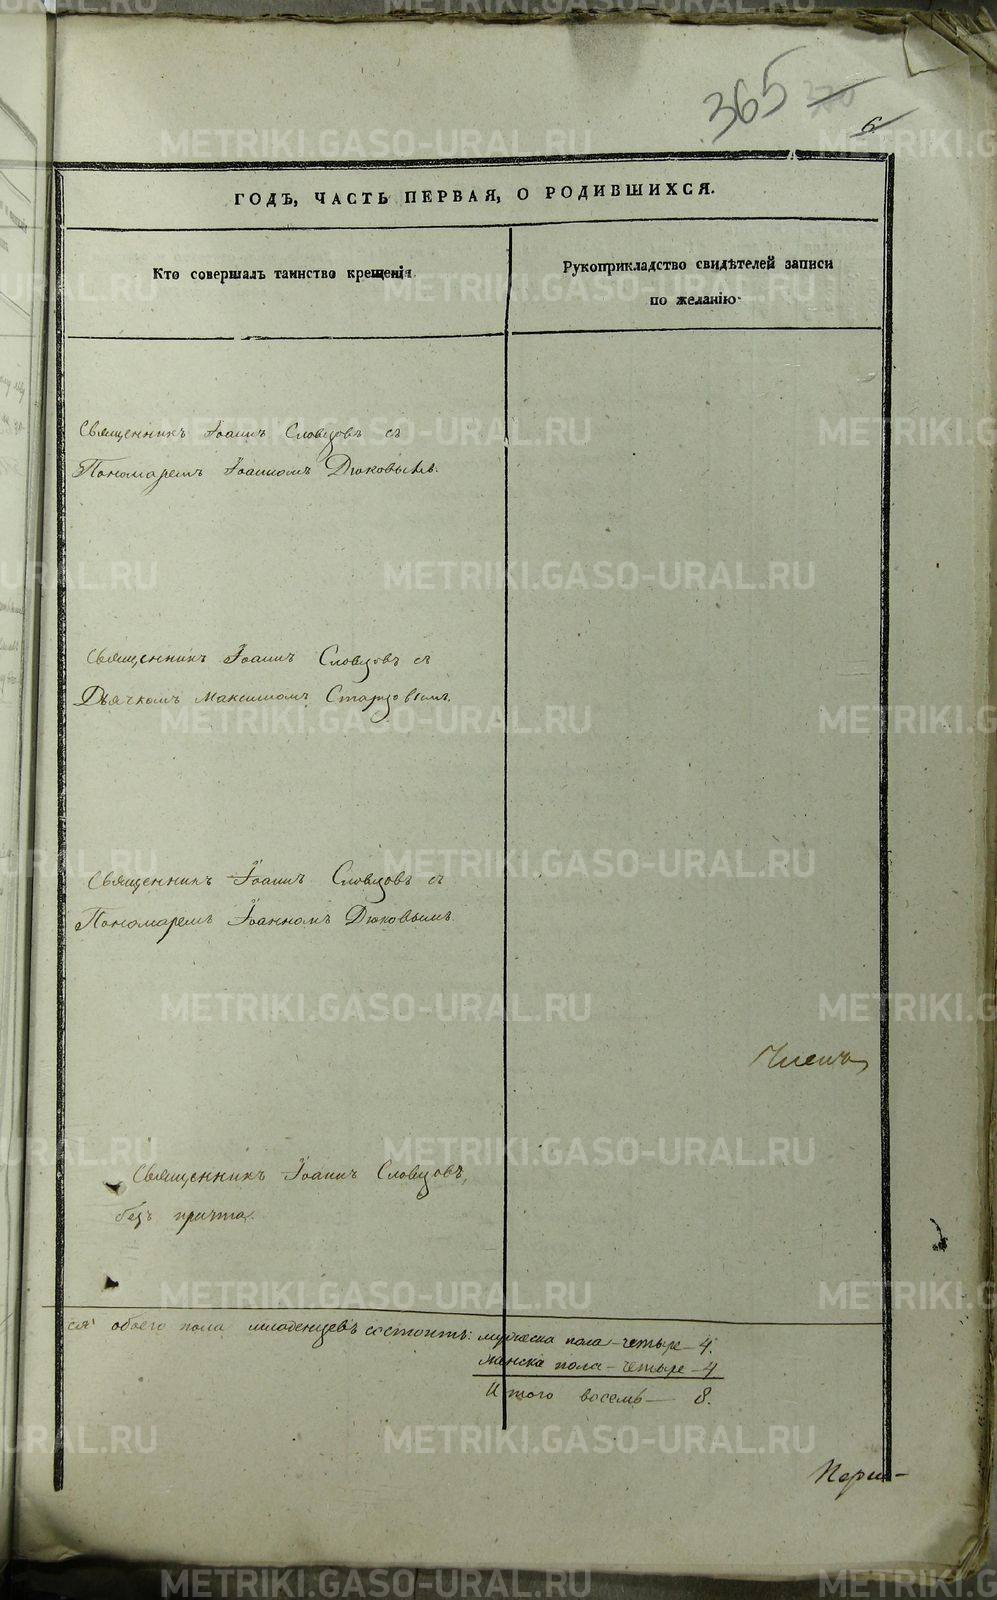 365 370
6
ГОДЪ, ЧАСТЬ ПЕРВАЯ, О РОДИВШИХСЯ.
Кто совершалъ таинство крещенія.
Рукоприкладство свидѣтелей записи
по желанію.
Священникъ Іоаннъ Словцовъ съ
Пономаремъ Іоанномъ Дюковымъ.
Священникъ Іоаннъ Словцовъ съ
Дьячкомъ Максимомъ Старцовымъ.
Священникъ Іоаннъ Словцовъ съ
Пономаремъ Іоанномъ Дюковымъ.
Членъ
Священникъ Іоаннъ Словцовъ,
безъ причта.
ся обоего пола младенцевъ состоитъ: мужеска пола – четыре – 4.
женска пола – четыре – 4
Итого восемь – 8.
METRIKI.GASO-URAL.RU